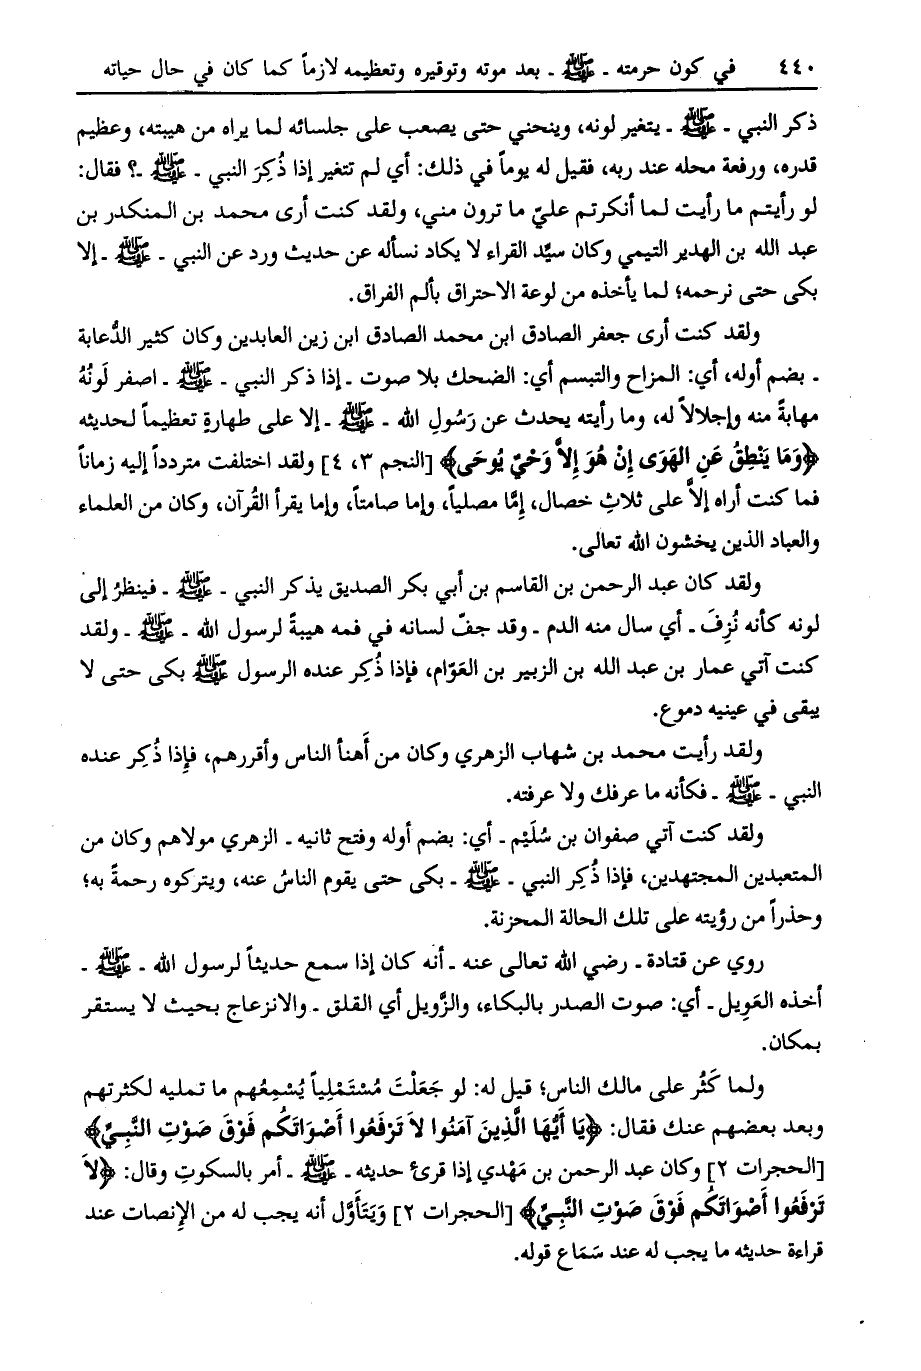 ٤٤٠ في كون حرمته ـ ﷺ ـ بعد موته وتوقيره وتعظيمه لازماً كما كان في حال حياته
ذكر النبي ـ ﷺ ـ يتغير لونه، وينحني حتى يصعب على جلسائه لما يراه من هيبته، وعظيم
قدره، ورفعة محله عند ربه، فقيل له يوماً في ذلك: أي لم تتغير إذا ذُكِرَ النبي ـ ﷺ ـ؟ فقال:
لو رأيتم ما رأيت لما أنكرتم عليّ ما ترون مني، ولقد كنت أرى محمد بن المنكدر بن
عبد الله بن الهدير التيمي وكان سيِّد القراء لا يكاد نسأله عن حديث ورد عن النبي ـ ﷺ ـ إلا
بكى حتى نرحمه؛ لما يأخذه من لوعة الاحتراق بألم الفراق.
ولقد كنت أرى جعفر الصادق ابن محمد الصادق ابن زين العابدين وكان كثير الدُّعابة
ـ بضم أوله، أي: المزاح والتبسم أي: الضحك بلا صوت ـ إذا ذكر النبي ـ ﷺ ـ اصفر لَونُهُ
مهابةً منه وإجلالاً له، وما رأيته يحدث عن رَسُولِ الله ـ ﷺ ـ إلا على طهارةٍ تعظيماً لحديثه
﴿وَمَا يَنْطِقُ عَنِ الهَوَى إِنْ هُوَ إِلاَّ وَحْيٌ يُوحَى﴾ [النجم ٣، ٤] ولقد اختلفت متردداً إليه زماناً
فما كنت أراه إلاَّ على ثلاثِ خصال، إِمَّا مصلياً، وإما صامتاً، وإما يقرأ القُرآن، وكان من العلماء
والعباد الذين يخشون الله تعالى.
ولقد كان عبد الرحمن بن القاسم بن أبي بكر الصديق يذكر النبي ـ ﷺ ـ فينظرُ إلى
لونه كأنه نُزِفَ ـ أي سال منه الدم ـ وقد جفّ لسانه في فمه هيبةً لرسول الله ـ ﷺ ـ ولقد
كنت آتي عمار بن عبد الله بن الزبير بن العَوّام، فإذا ذُكِر عنده الرسول ﷺ بكى حتى لا
يبقى في عينيه دموع.
ولقد رأيت محمد بن شهاب الزهري وكان من أَهنأ الناس وأقررهم، فإِذا ذُكِر عنده
النبي ـ ﷺ ـ فكأنه ما عرفك ولا عرفته.
ولقد كنت آتي صفوان بن سُلَيْم ـ أي: بضم أوله وفتح ثانيه ـ الزهري مولاهم وكان من
المتعبدين المجتهدين، فإذا ذُكِر النبي ـ ﷺ ـ بكى حتى يقوم الناسُ عنه، ويتركوه رحمةً به؛
وحذراً من رؤيته على تلك الحالة المحزنة.
روي عن قتادة ـ رضي الله تعالى عنه ـ أنه كان إذا سمع حديثاً لرسول الله ـ ﷺ ـ
أخذه العَوِيل ـ أي: صوت الصدر بالبكاء، والزَّويل أي القلق ـ والانزعاج بحيث لا يستقر
بمكان.
ولما كَثُر على مالك الناس؛ قيل له: لو جَعَلْتَ مُسْتَمْلِياً يُسْمِعُهم ما تمليه لكثرتهم
وبعد بعضهم عنك فقال: ﴿يَا أَيُّهَا الَّذِينَ آمَنُوا لاَ تَرْفَعُوا أَصْوَاتَكُم فَوْقَ صَوْتِ النَّبِيِّ﴾
[الحجرات ٢] وكان عبد الرحمن بن مَهْدي إذا قرئ حديثه ـ ﷺ ـ أمر بالسكوتِ وقال: ﴿لاَ
تَرْفَعُوا أَصْوَاتَكُم فَوْقَ صَوْتِ النَّبِيِّ﴾ [الحجرات ٢] وَيَتَأَوَّل أنه يجب له من الإِنصات عند
قراءة حديثه ما يجب له عند سَمَاع قوله.